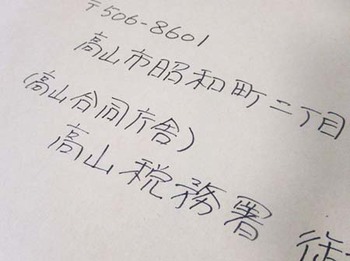 〒506-8601
高山市昭和町二丁目
(高山合同庁舎)
高山税務署